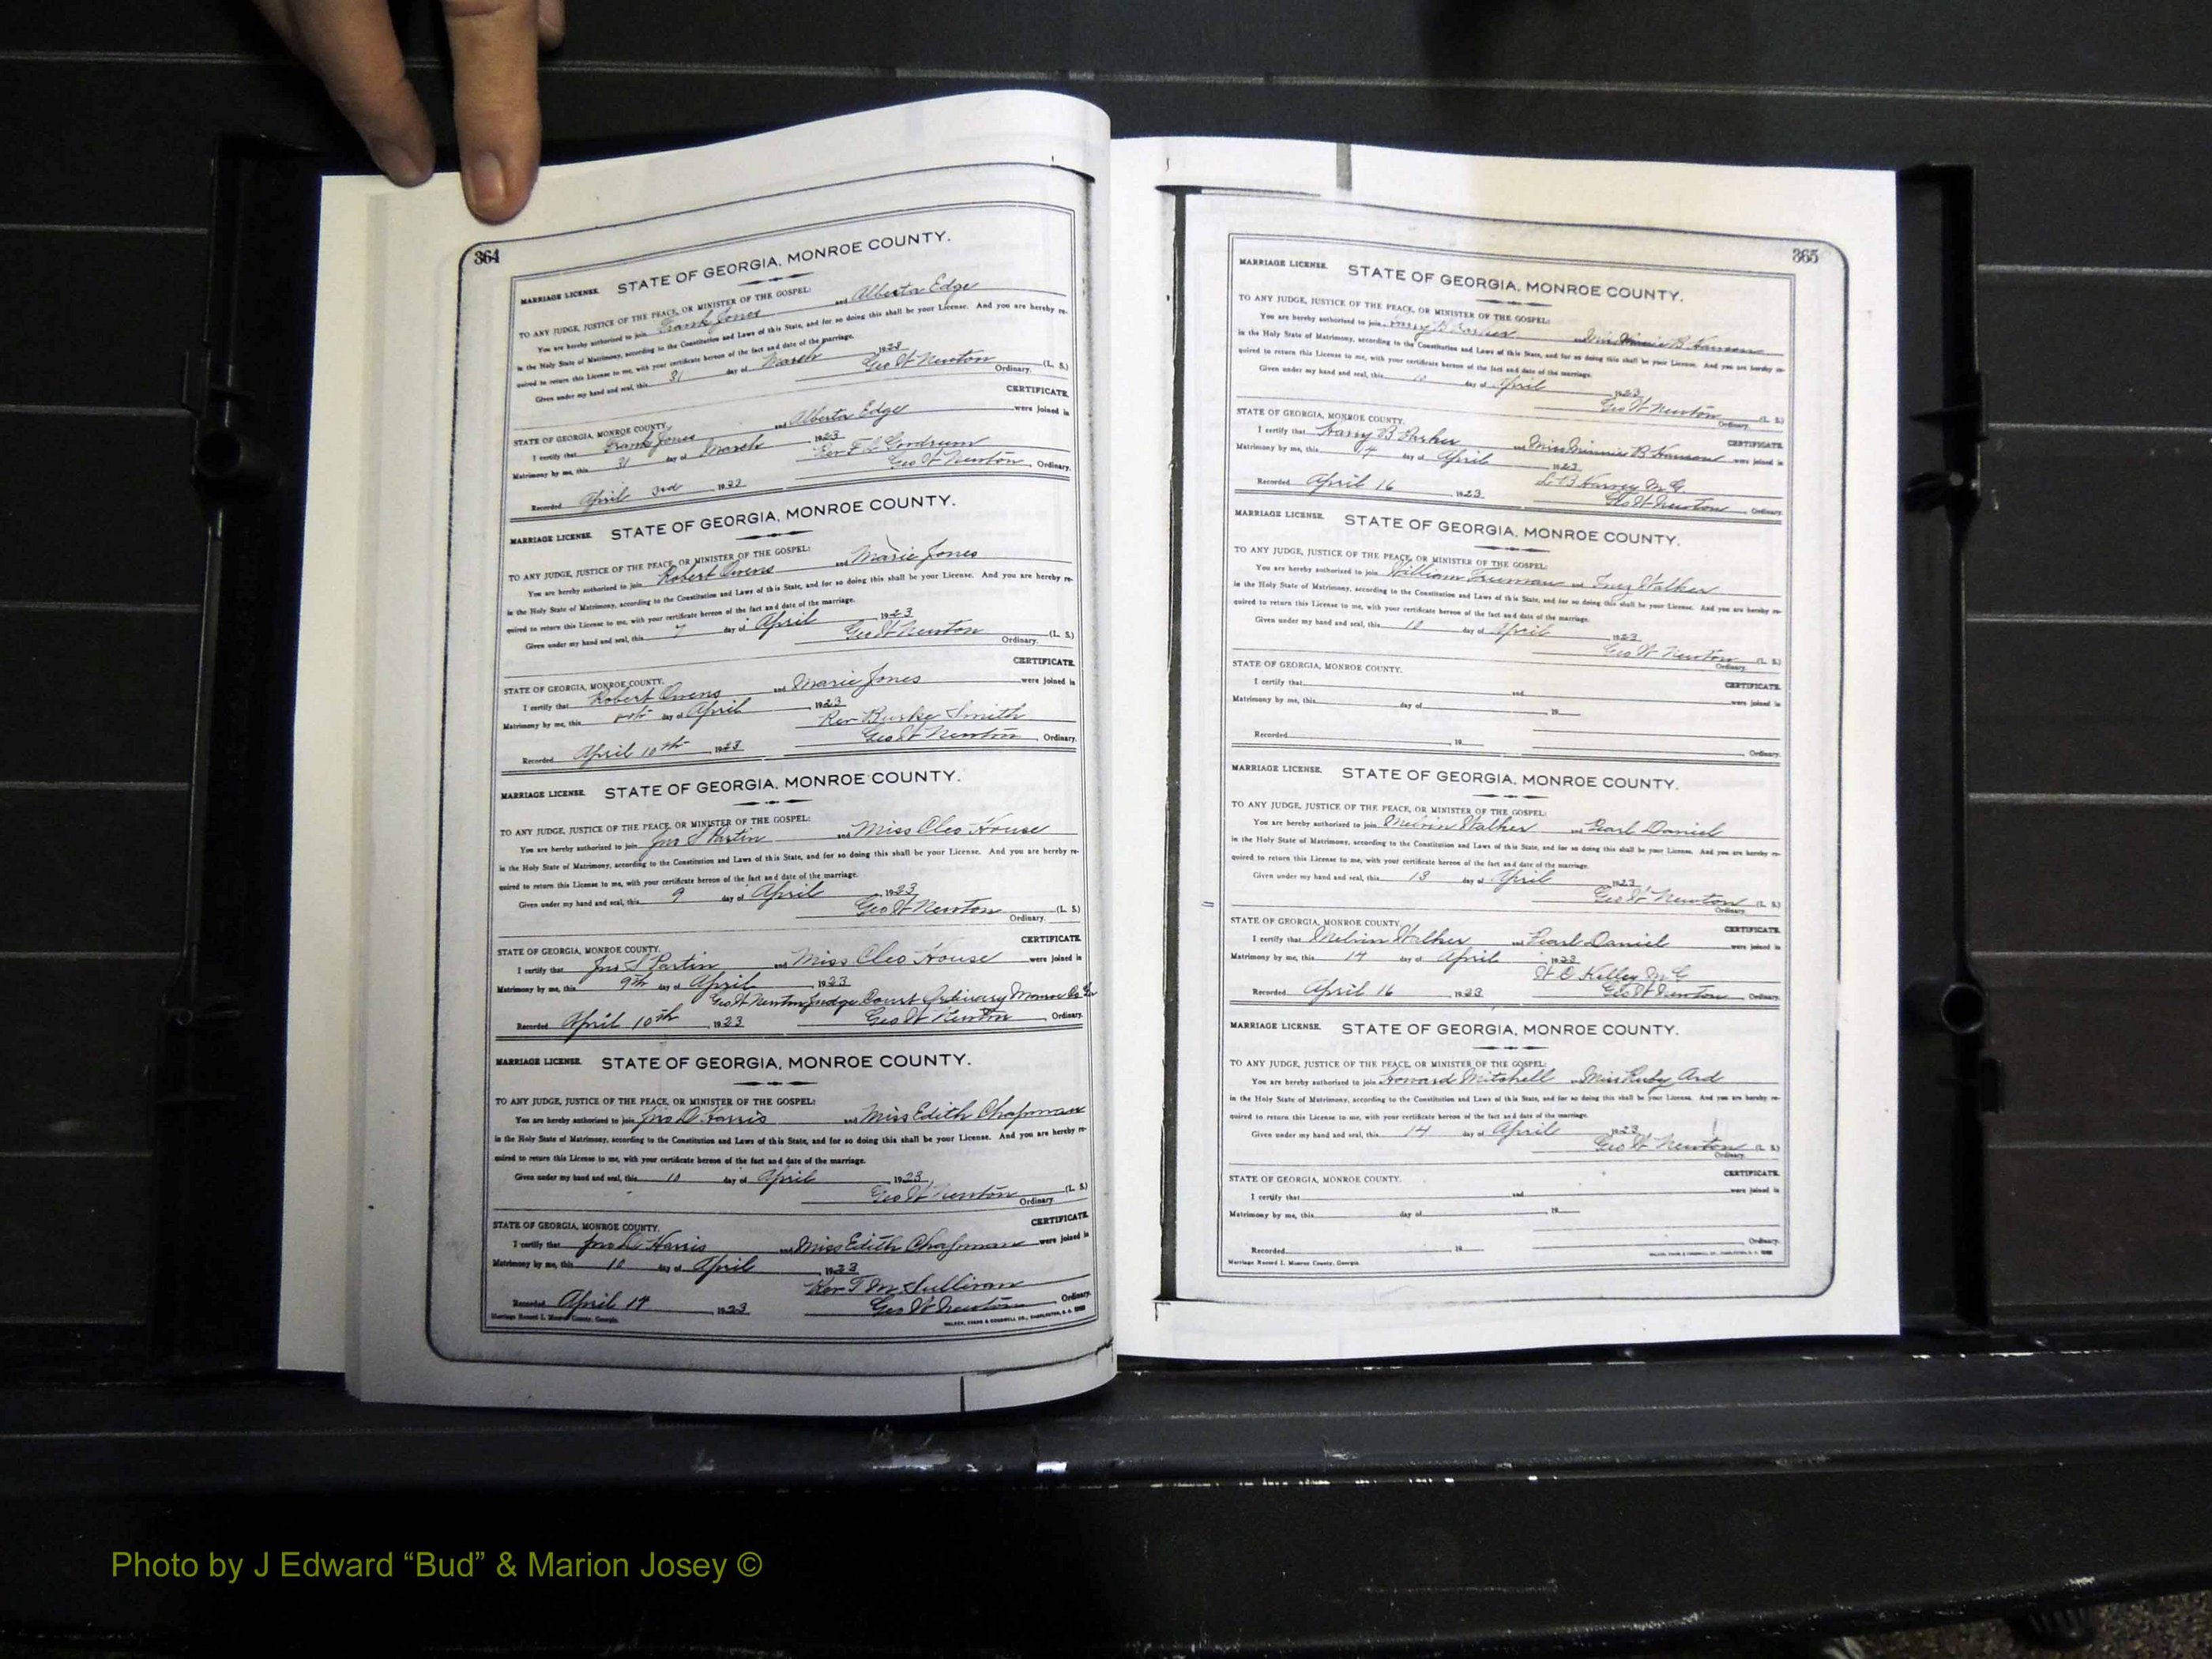 364
MARRIAGE LICENSE. STATE OF GEORGIA, MONROE COUNTY.
TO ANY JUDGE, JUSTICE OF THE PEACE, OR MINISTER OF THE GOSPEL:
You are hereby authorized to join Frank Jones and Alberta Edge
in the Holy State of Matrimony, according to the Constitution and Laws of this State, and for so doing this shall be your License. And you are hereby re-
quired to return this License to me, with your certificate hereon of the fact and date of the marriage.
Given under my hand and seal, this 31 day of March 1923
Geo W Newton (L. S.)
Ordinary.
CERTIFICATE.
STATE OF GEORGIA, MONROE COUNTY.
I certify that Frank Jones and Alberta Edge were joined in
Matrimony by me, this 31 day of March 1923
Rev F L Goodrum
Recorded April 3rd 1923 Geo W Newton, Ordinary.
MARRIAGE LICENSE. STATE OF GEORGIA, MONROE COUNTY.
TO ANY JUDGE, JUSTICE OF THE PEACE, OR MINISTER OF THE GOSPEL:
You are hereby authorized to join Robert Owens and Marie Jones
in the Holy State of Matrimony, according to the Constitution and Laws of this State, and for so doing this shall be your License. And you are hereby re-
quired to return this License to me, with your certificate hereon of the fact and date of the marriage.
Given under my hand and seal, this 7 day of April 1923
Geo W Newton (L. S.)
Ordinary.
CERTIFICATE.
STATE OF GEORGIA, MONROE COUNTY.
I certify that Robert Owens and Marie Jones were joined in
Matrimony by me, this day of April 1923
Rev Burke Smith
Recorded April 10th 1923 Geo W Newton, Ordinary.
MARRIAGE LICENSE. STATE OF GEORGIA, MONROE COUNTY.
TO ANY JUDGE, JUSTICE OF THE PEACE, OR MINISTER OF THE GOSPEL:
You are hereby authorized to join Jno S Partin and Miss Cleo House
in the Holy State of Matrimony, according to the Constitution and Laws of this State, and for so doing this shall be your License. And you are hereby re-
quired to return this License to me, with your certificate hereon of the fact and date of the marriage.
Given under my hand and seal, this 9 day of April 1923
Geo W Newton (L. S.)
Ordinary.
CERTIFICATE.
STATE OF GEORGIA, MONROE COUNTY.
I certify that Jno S Partin and Miss Cleo House were joined in
Matrimony by me, this 9th day of April 1923
Geo W Newton Judge Court Ordinary Monroe Co Ga
Recorded April 10th 1923 Geo W Newton, Ordinary.
MARRIAGE LICENSE. STATE OF GEORGIA, MONROE COUNTY.
TO ANY JUDGE, JUSTICE OF THE PEACE, OR MINISTER OF THE GOSPEL:
You are hereby authorized to join Jno D Harris and Miss Edith Chapman
in the Holy State of Matrimony, according to the Constitution and Laws of this State, and for so doing this shall be your License. And you are hereby re-
quired to return this License to me, with your certificate hereon of the fact and date of the marriage.
Given under my hand and seal, this 10 day of April 1923
Geo W Newton (L. S.)
Ordinary.
CERTIFICATE.
STATE OF GEORGIA, MONROE COUNTY.
I certify that Jno D Harris and Miss Edith Chapman were joined in
Matrimony by me, this 10 day of April 1923
Rev T M Sullivan
Recorded April 14 1923 Geo W Newton, Ordinary.
Marriage Record I. Monroe County, Georgia. WALKER, EVANS & COGSWELL CO., CHARLESTON, S. C.
365
MARRIAGE LICENSE. STATE OF GEORGIA, MONROE COUNTY.
TO ANY JUDGE, JUSTICE OF THE PEACE, OR MINISTER OF THE GOSPEL:
You are hereby authorized to join Harry B Parker and Miss Minnie B Hanson
in the Holy State of Matrimony, according to the Constitution and Laws of this State, and for so doing this shall be your License. And you are hereby re-
quired to return this License to me, with your certificate hereon of the fact and date of the marriage.
Given under my hand and seal, this 10 day of April 1923
Geo W Newton (L. S.)
Ordinary.
STATE OF GEORGIA, MONROE COUNTY.
CERTIFICATE.
I certify that Harry B Parker and Miss Minnie B Hanson were joined in
Matrimony by me, this 14 day of April 1923
L B Harvey M. G.
Recorded April 16 1923 Geo W Newton, Ordinary.
MARRIAGE LICENSE. STATE OF GEORGIA, MONROE COUNTY.
TO ANY JUDGE, JUSTICE OF THE PEACE, OR MINISTER OF THE GOSPEL:
You are hereby authorized to join William Freeman and Inez Walker
in the Holy State of Matrimony, according to the Constitution and Laws of this State, and for so doing this shall be your License. And you are hereby re-
quired to return this License to me, with your certificate hereon of the fact and date of the marriage.
Given under my hand and seal, this 10 day of April 1923
Geo W Newton (L. S.)
Ordinary.
STATE OF GEORGIA, MONROE COUNTY.
CERTIFICATE.
I certify that and were joined in
Matrimony by me, this day of 19
Recorded 19 Ordinary.
MARRIAGE LICENSE. STATE OF GEORGIA, MONROE COUNTY.
TO ANY JUDGE, JUSTICE OF THE PEACE, OR MINISTER OF THE GOSPEL:
You are hereby authorized to join Melvin Walker and Pearl Daniel
in the Holy State of Matrimony, according to the Constitution and Laws of this State, and for so doing this shall be your License. And you are hereby re-
quired to return this License to me, with your certificate hereon of the fact and date of the marriage.
Given under my hand and seal, this 13 day of April 1923
Geo W Newton (L. S.)
Ordinary.
STATE OF GEORGIA, MONROE COUNTY.
CERTIFICATE.
I certify that Melvin Walker and Pearl Daniel were joined in
Matrimony by me, this 14 day of April 1923
W O Kelley M G
Recorded April 16 1923 Geo W Newton, Ordinary.
MARRIAGE LICENSE. STATE OF GEORGIA, MONROE COUNTY.
TO ANY JUDGE, JUSTICE OF THE PEACE, OR MINISTER OF THE GOSPEL:
You are hereby authorized to join Howard Mitchell and Miss Ruby Ard
in the Holy State of Matrimony, according to the Constitution and Laws of this State, and for so doing this shall be your License. And you are hereby re-
quired to return this License to me, with your certificate hereon of the fact and date of the marriage.
Given under my hand and seal, this 14 day of April 1923
Geo W Newton (L. S.)
Ordinary.
CERTIFICATE.
STATE OF GEORGIA, MONROE COUNTY.
I certify that and were joined in
Matrimony by me, this day of 19
Recorded 19 Ordinary.
Marriage Record I. Monroe County, Georgia. WALKER, EVANS & COGSWELL CO., CHARLESTON, S. C.
Photo by J Edward “Bud” & Marion Josey ©